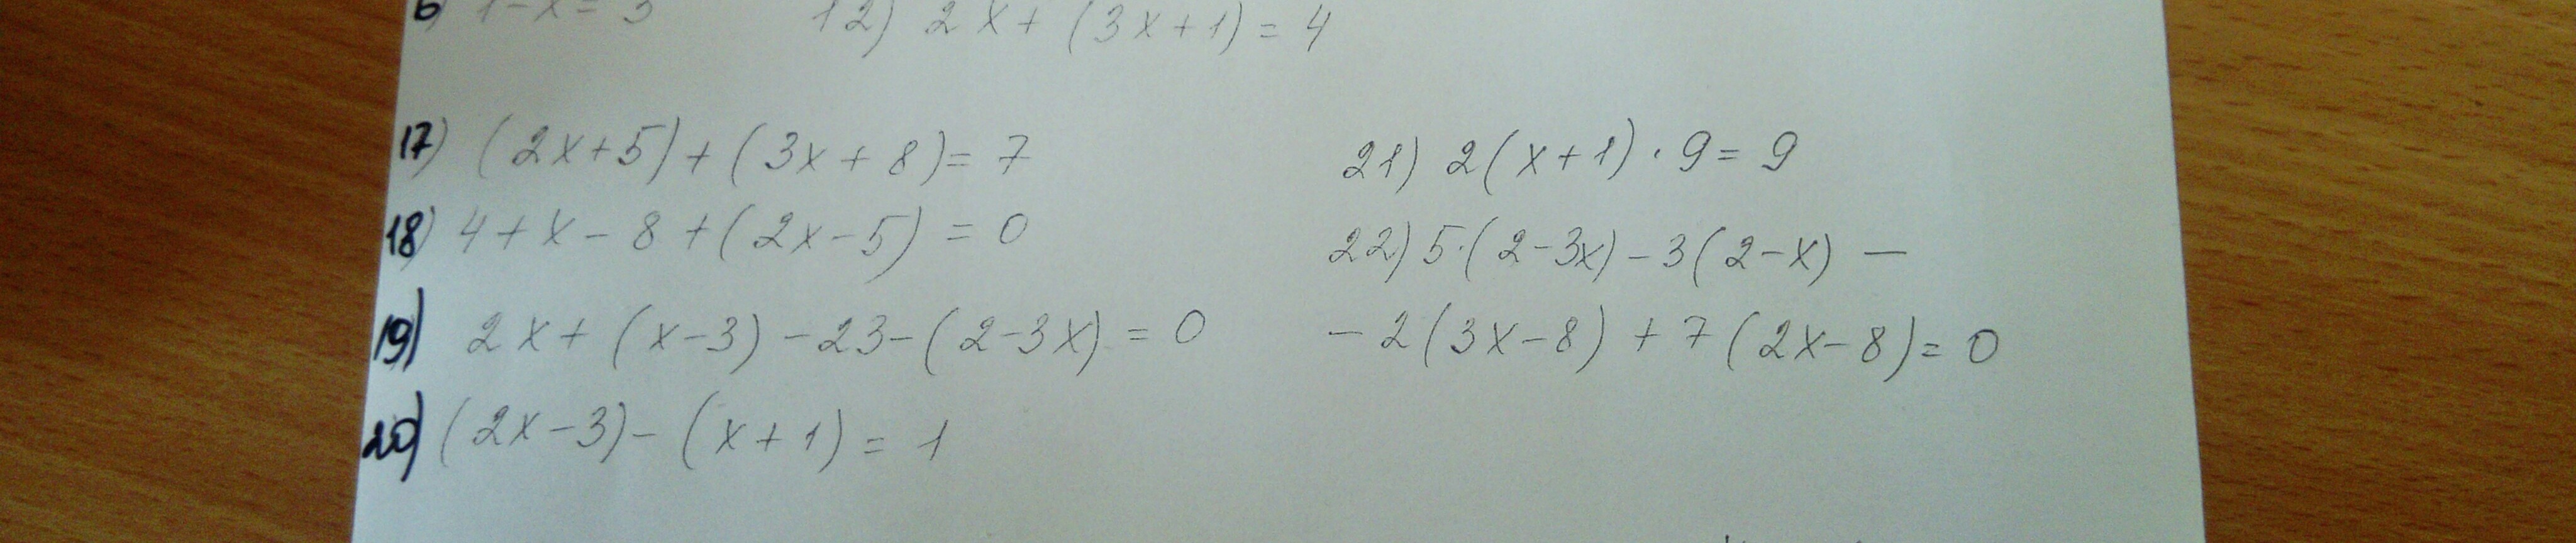 6) 1-x=3
12) 2x+(3x+1)=4
17) (2x+5)+(3x+8)=7
18) 4+x-8+(2x-5)=0
19) 2x+(x-3)-23-(2-3x)=0
20) (2x-3)-(x+1)=1
21) 2(x+1)·9=9
22) 5·(2-3x)-3(2-x)-
-2(3x-8)+7(2x-8)=0